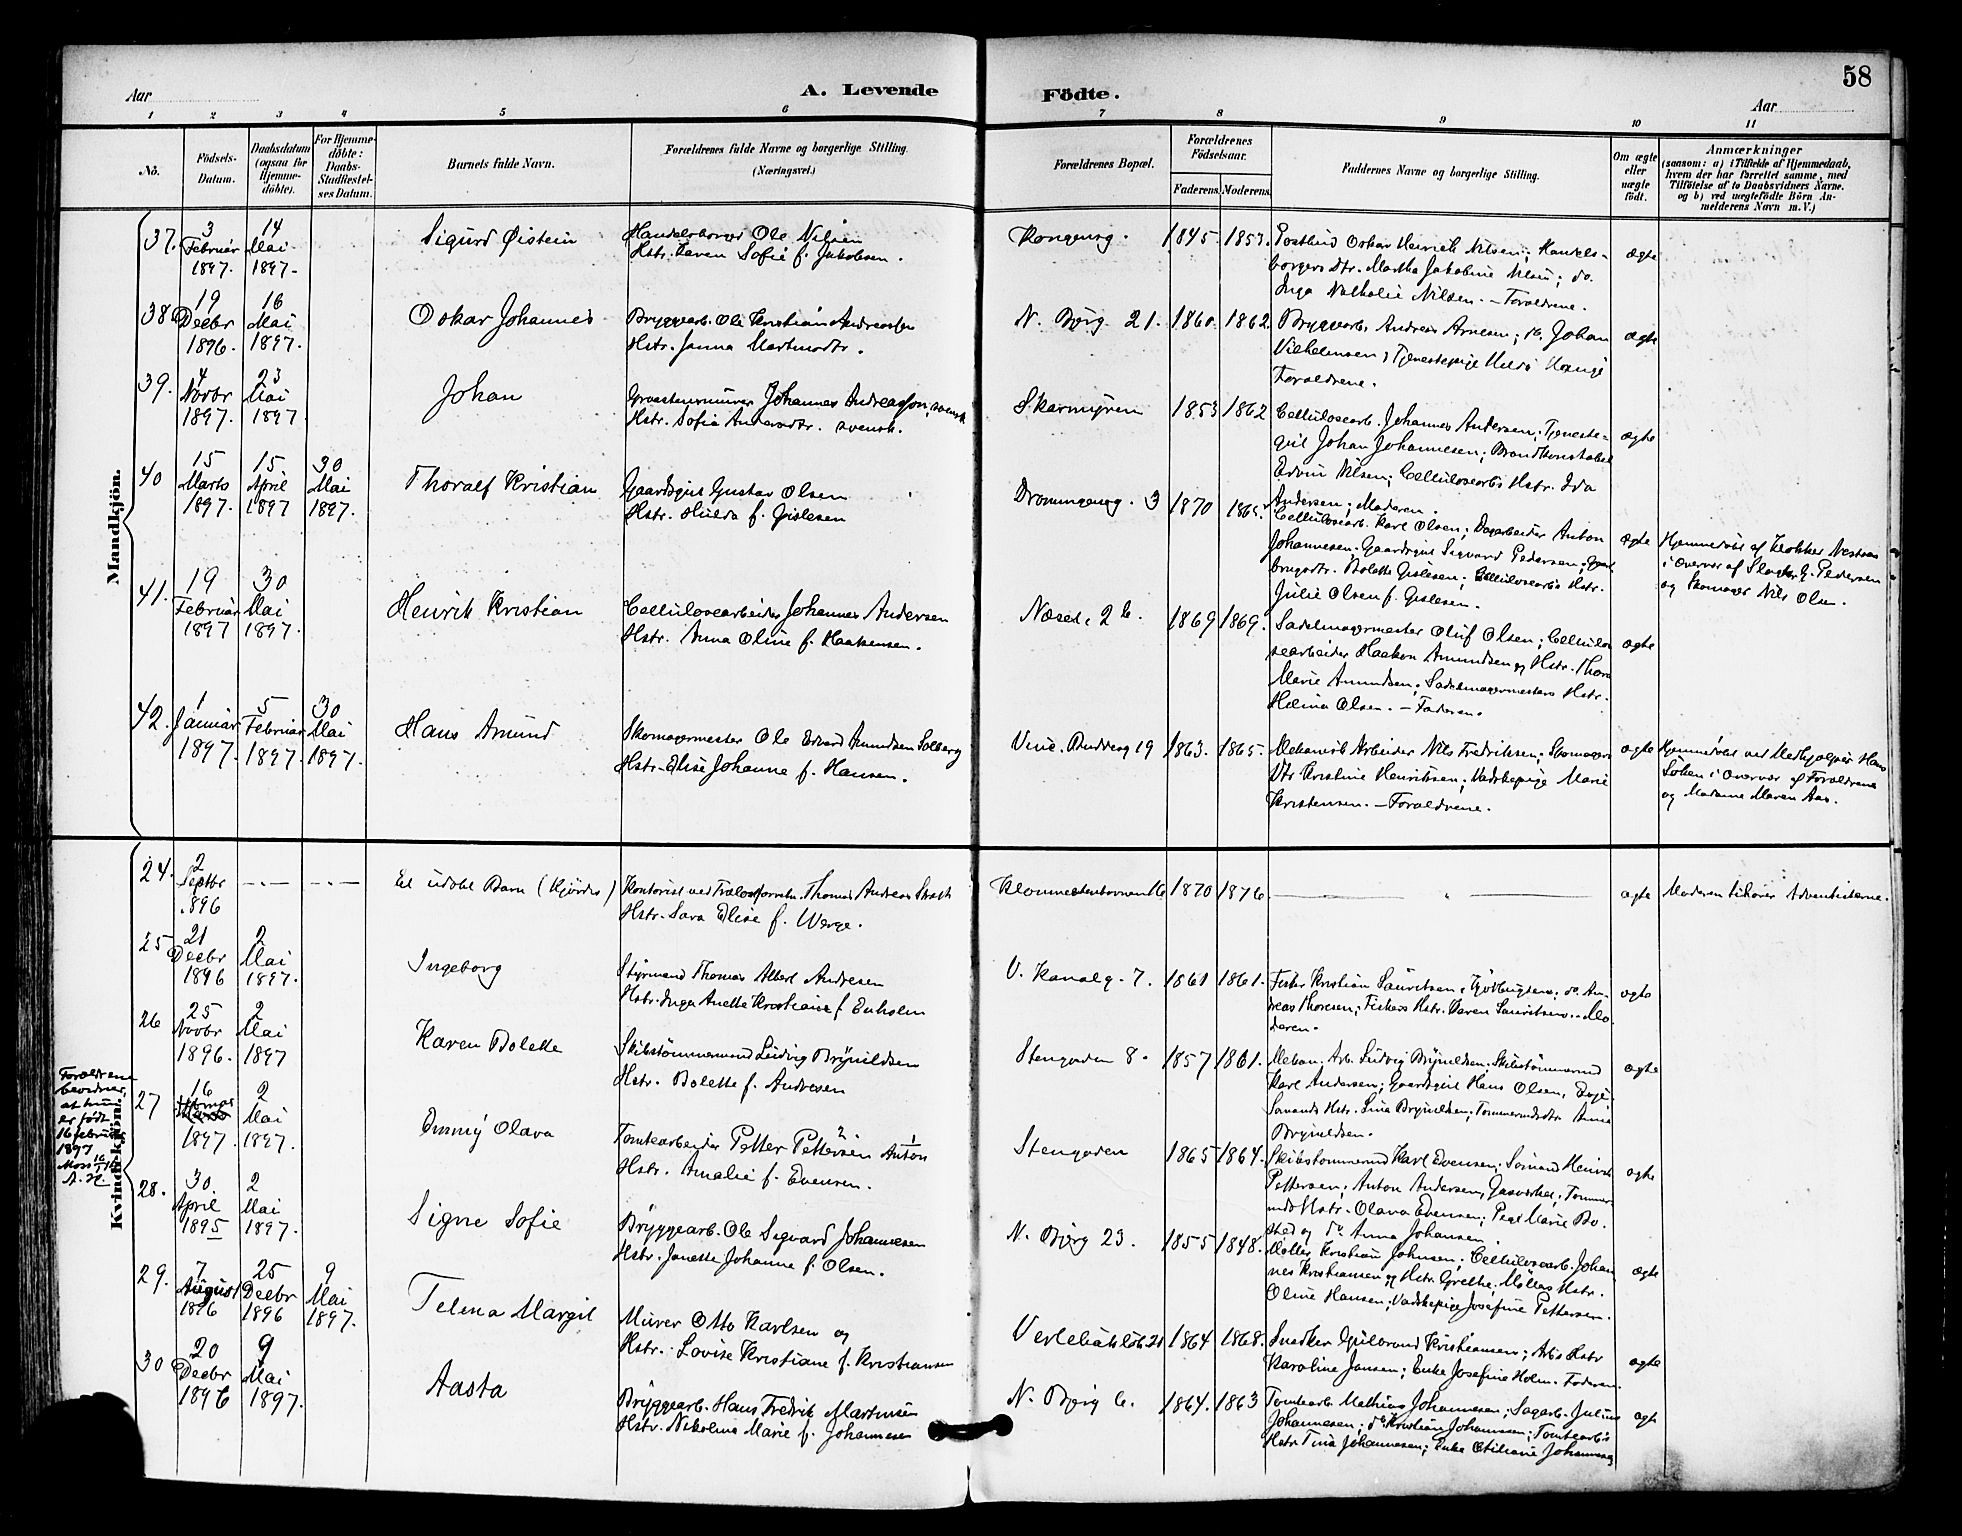 58
Aar
A. Levende
Födte.
Aar
1 2 3 4 5 6 7 8 9 10 11
No.
Födsels-
Datum.
Daabsdatum
(ogsaa for
Hjemme-
döbte).
For Hjemme-
döbte:
Daabs-
Stadfæstel-
ses Datum.
Barnets fulde Navn.
Forældrenes fulde Navne og borgerlige Stilling.
(Næringsvei.)
Forældrenes Bopæl.
Forældrenes
Födselsaar.
Faderens. Moderens.
Faddernes Navne og borgerlige Stilling.
Om ægte
eller
uægte
födt.
Anmærkninger
(saasom: a) i Tilfælde af Hjemmedaab,
hvem der har forrettet samme, med
Tilföielse af to Daabsvidners Navne.
og b) ved uægtefödte Börn An-
melderens Navn m. V.)
Mandkjön.
37. 3 Februar 1897. 14 Mai 1897.
Sigurd Øistein
Ole Nilsen
Hstr. Karen Sofie f. Jakobsen.
Kongensg. 1845. 1853.
Oskar Henrik Nilsen; Handels-
borgers Dtr. Martha Jakobine Nilsen; do.
Inga Nathalie Nilsen. - Forældrene.
ægte
38. 19 Decbr 1896. 16 Mai 1897.
Oskar Johannes
Bryggearb. Ole Kristian Andreassen
Hstr. Janna Martinsdtr.
N. Bjerg. 21. 1860. 1862.
Bryggearb. Andreas Arnesen; do. Johan
Vilhelmsen; Tjenestepige Hilda
Forældrene.
ægte
39. 4 Novbr 1897. 23 Mai 1897.
Johan
Johannes Andreasson, svensk
Hstr. Sofia Andersdtr. svensk.
Skarmyren 1853 1862
Cellulosearb. Johannes Andersen; Tjeneste-
gut Johan Johannesen; Brandkonstabel
Edvin Nilsen; Cellulosearbs Hstr. Ida
Andersen; Moderen.
ægte
40 15 Marts 1897. 15 April 1897 30 Mai 1897.
Thoralf Kristian
Gaardsgut Gustav Olsen
Hstr. Hulda f. Gislesen
Dronningensg. 3 1870 1865.
Cellulosearb. Karl Olsen; Dagarbeider Anton
Johannesen; Gaardsgut Sigvard Pedersen;
Bolette Gislesen; Cellulosearbs Hstr.
Julie Olsen f. Gislesen.
ægte
Hjemmedøbt af Klokker
i Overvær af G. Pedersen
og Skomager Nils Olsen.
41. 19 Februar 1897 30 Mai 1897.
Henrik Kristian
Cellulosearbeider Johannes Andersen
Hstr. Anna Oline f. Haakensen.
Næsed. 2 b. 1869 1869.
Sadelmagermester Oluf Olsen; Cellulo
searbeider Haakon Amundsen og Hstr. Thora
Marie Amundsen; Sadelmagermesters Hstr.
Helina Olsen. - Faderen.
ægte
42. 1 Januar 1897. 5 Februar 1897. 30 Mai 1897.
Hans Amund
Skomagermester Ole Edvard Amundsen Solberg
Hstr. Elise Johanne f. Hansen.
19 1863. 1865.
Mekanisk Arbeider Nils Fredriksen; Skomagers
Dtr Kristine Henriksen; Vadskepige Marie
Kristensen. - Forældrene.
ægte
Hjemmedøbt ved Medhjælper Hans
i Overvær af Forældrene
og Madame Maren Aas.
Kvindekjön.
24. 2 Septbr 1896 -.- -.-
Et udøbt Barn (Kjördis)
Kontorist ved Thomas Andreas
Hstr. Sara Elise f. Werge.
16 1870 1876.
ægte
Moderen tilhører Adventisterne.
25 21 Decbr 1896 2 Mai 1897.
Ingeborg
Styrmand Thomas Albert Andresen
Hstr. Inga Anette Kristiane f. Enholm
V. Kanalg. 7. 1861 1861.
Fisker Kristian Lauritsen, do. An-
dreas Thoresen; Fiskers Hstr. Karen Lauritsen. - Mo
deren.
ægte
26 25 Novbr 1896. 2 Mai 1897
Karen Bolette
Skibstömmermand Ludvig Brynildsen
Hstr. Bolette f. Andresen
Stengaden 8. 1857 1861.
Mekan. Arb. Ludvig Brynildsen; Skibstömmermd
Karl Andersen; Gaardsgut Hans Olsen,
Sømands Hstr. Lina Brynildsen; Tömmermdsdtr Anna
Brynildsen.
ægte
Forældrene
bevidner,
at hun
er født
16 februar
1897
Moss
A.H.
27 16 Mai 1897. 2 Mai 1897.
Emmy Olava
Tomtearbeider Petter Pettersen Anton
Hstr. Amalie f. Evensen.
Stengaden 1865 1864.
Skibstømmermd Karl Evensen; Sømand Henrik
Pettersen; Anton Andersen, Gasværket; Tømmer
mds Hstr. Olava Evensen; Pige Marie Bo-
sted og do. Anna Johansen.
ægte
28. 30. April 1895 2 Mai 1897.
Signe Sofie
Bryggearb. Ole Sigvard Johannesen
Hstr. Janette Johanne f. Olsen.
N. Bjerg 23. 1855 1848.
Møller Kristian Johnsen; Cellulosearb. Johan
nes Kristiansen og Hstr. Grethe; Møllers Hstr.
Oline Hansen; Vadskepige Josefine Pettersen.
ægte
29. 7 August 1896 25 Decbr 1896 9 Mai 1897.
Telma Margit
Murer Otto Karlsen og
Hstr. Lovise Kristiane f. Kristiansen
1864 1868.
Snedker Gulbrand Kristiansen; Arbs Hstr
Karoline Jansen; Enke Josefine Holm. Faderen.
ægte
30 20 Decbr 1896 9 Mai 1897.
Aasta
Bryggearb. Hans Fredrik Martinsen
Hstr. Nikoline Marie f. Johannesen
N. Bjerg 6. 1864. 1863
Tomtearb. Mathias Johannesen; Sagarb. Julius
Johannesen; do Kristian Johannesen; Tomtearbs
Hstr Tina Johannesen; Enke Johannesen
ægte